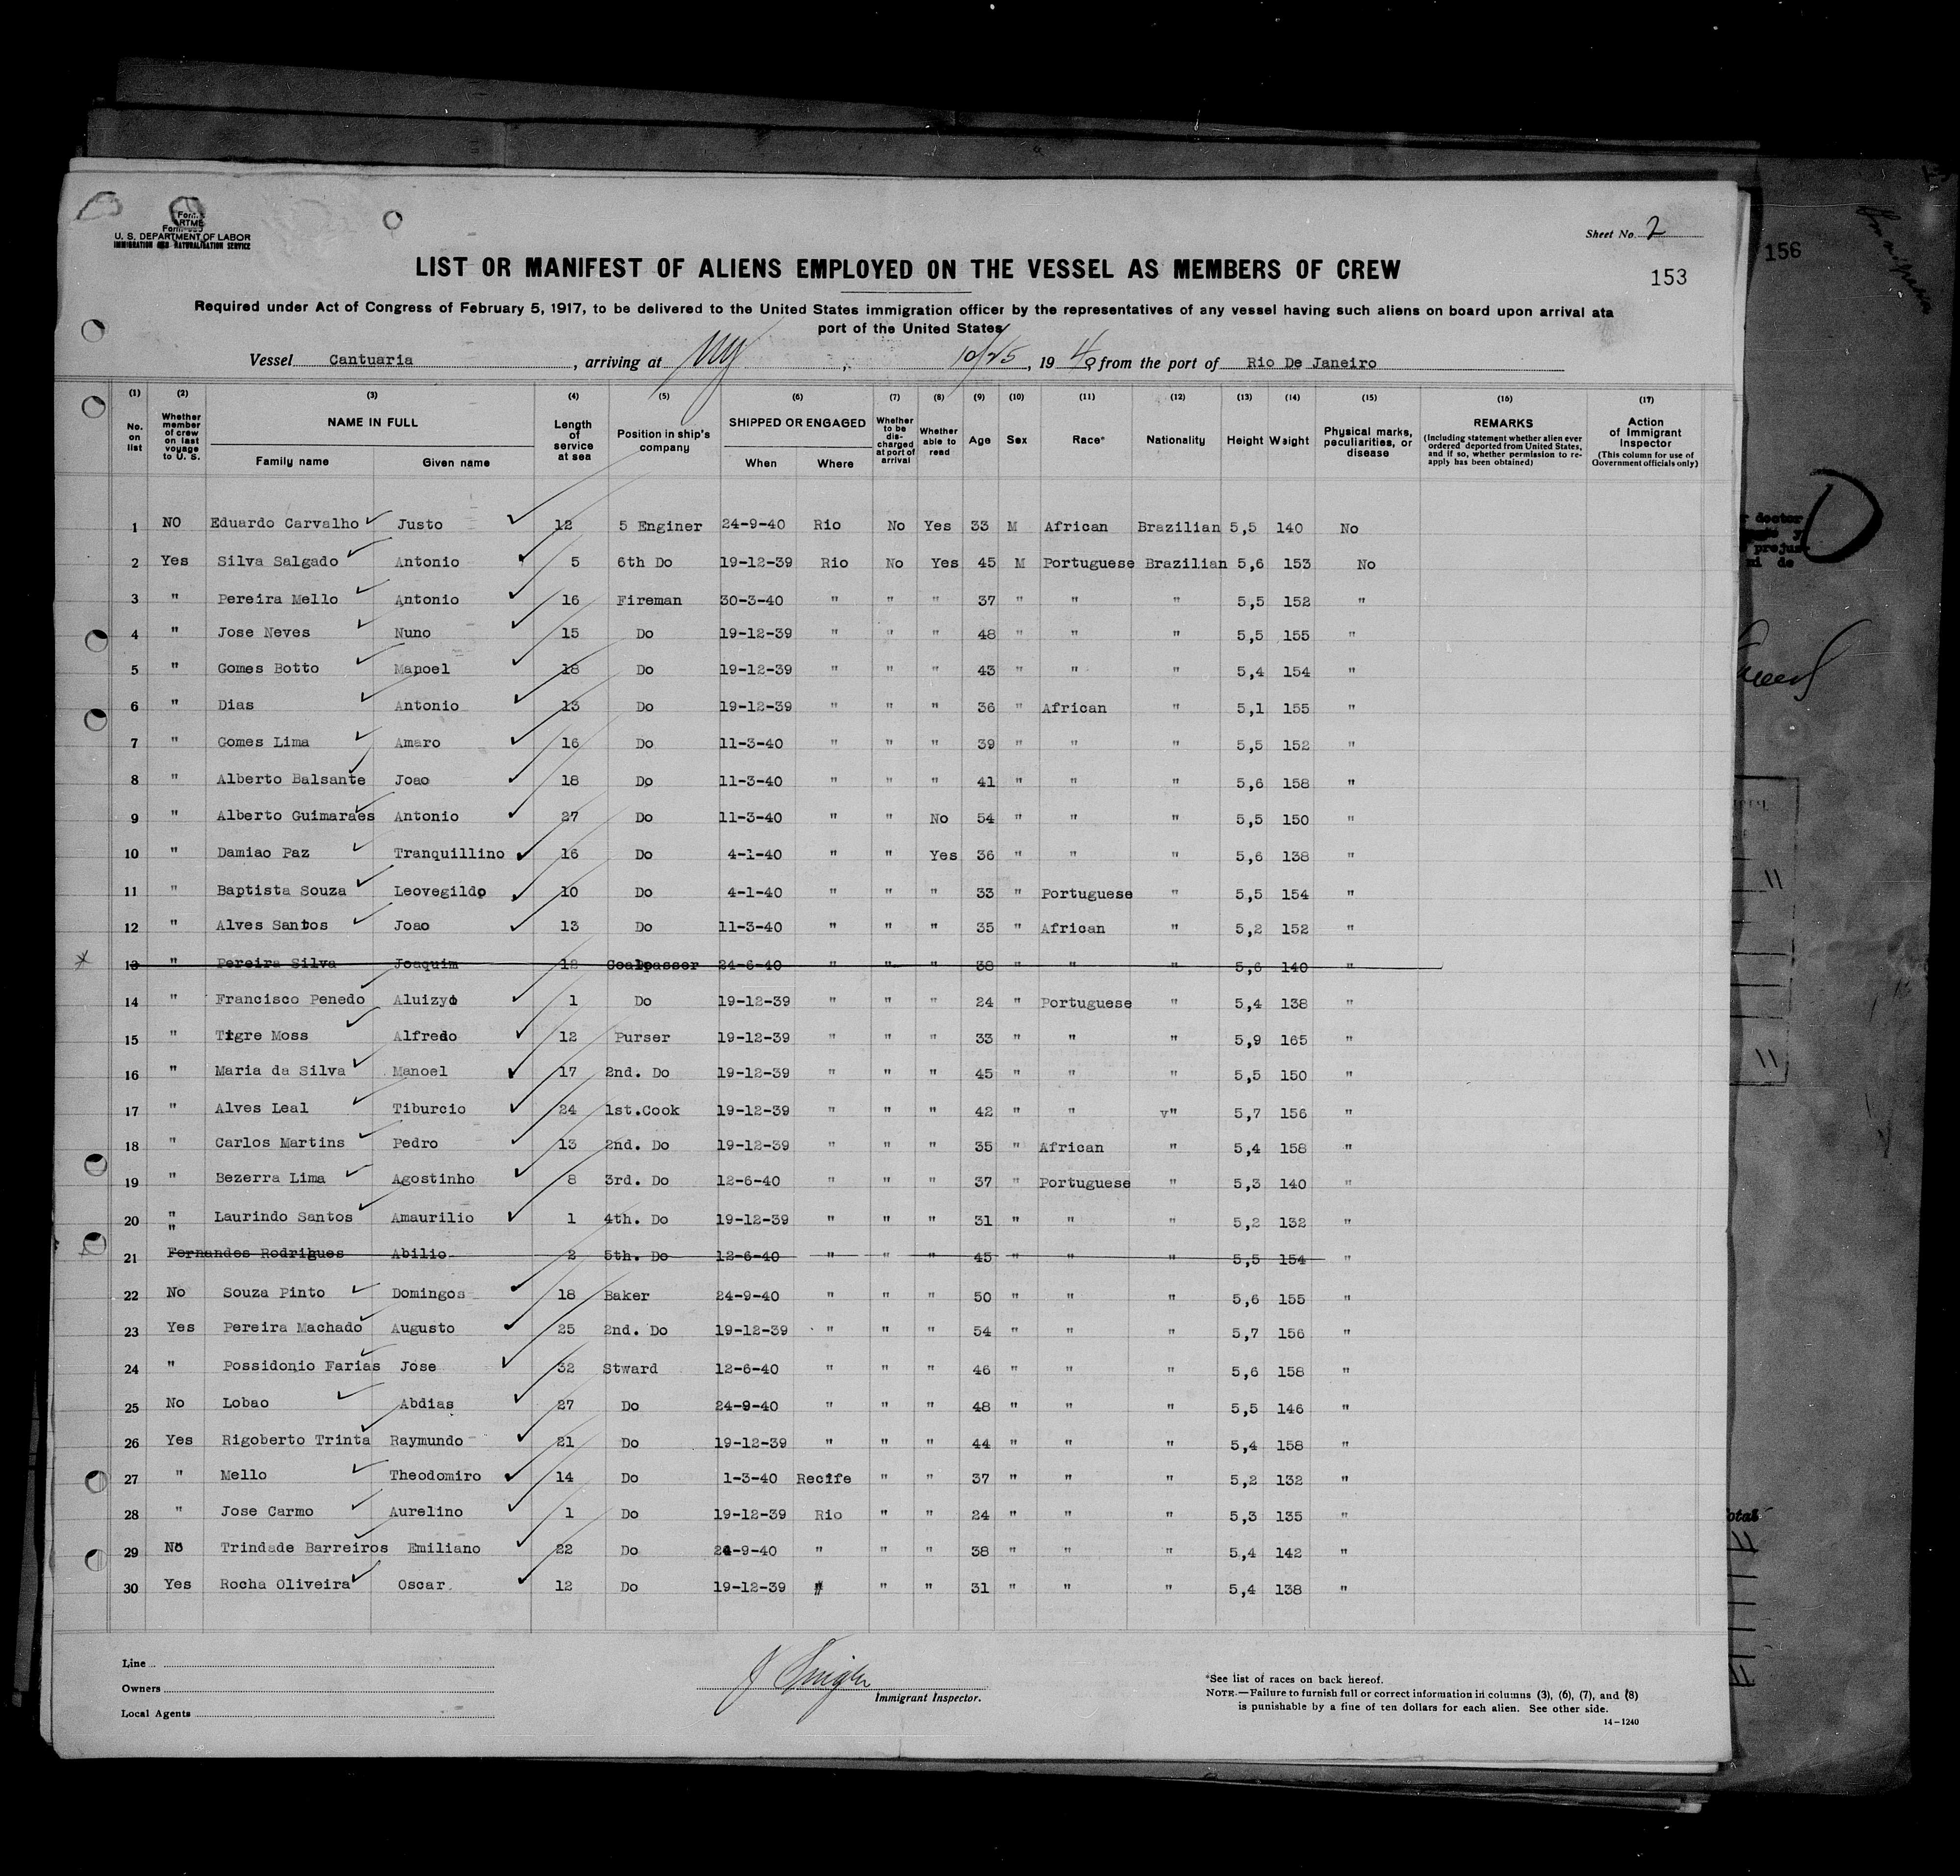 U. S. DEPARTMENT OF LABOR
IMMIGRATION AND NATURALISATION SERVICE
Sheet No. 2
LIST OR MANIFEST OF ALIENS EMPLOYED ON THE VESSEL AS MEMBERS OF CREW
153
156
Required under Act of Congress of February 5, 1917, to be delivered to the United States immigration officer by the representatives of any vessel having such aliens on board upon arrival ata
port of the United States
Vessel Cantuaria, arriving at NY, 10/25, 1940 from the port of Rio De Janeiro
(1) (2) (3) (4) (5) (6) (7) (8) (9) (10) (11) (12) (13) (14) (15) (16) (17)
No. on list Whether member of crew on last voyage to U. S. NAME IN FULL Family name Given name Length of service at sea Position in ship's company SHIPPED OR ENGAGED When Where Whether to be discharged at port of arrival Whether able to read Age Sex Race* Nationality Height Weight Physical marks, peculiarities, or disease REMARKS (Including statement whether alien ever ordered deported from United States, and if so, whether permission to reapply has been obtained) Action of Immigrant Inspector (This column for use of Government officials only)
1 NO Eduardo Carvalho Justo 12 5 Enginer 24-9-40 Rio No Yes 33 M African Brazilian 5,5 140 No
2 Yes Silva Salgado Antonio 5 6th Do 19-12-39 Rio No Yes 45 M Portuguese Brazilian 5,6 153 No
3 " Pereira Mello Antonio 16 Fireman 30-3-40 " " " 37 " " " 5,5 152 "
4 " Jose Neves Nuno 15 Do 19-12-39 " " " 48 " " " 5,5 155 "
5 " Gomes Botto Manoel 18 Do 19-12-39 " " " 43 " " " 5,4 154 "
6 " Dias Antonio 13 Do 19-12-39 " " " 36 " African " 5,1 155 "
7 " Gomes Lima Amaro 16 Do 11-3-40 " " " 39 " " " 5,5 152 "
8 " Alberto Balsante Joao 18 Do 11-3-40 " " " 41 " " " 5,6 158 "
9 " Alberto Guimaraes Antonio 27 Do 11-3-40 " " No 54 " " " 5,5 150 "
10 " Damiao Paz Tranquillino 16 Do 4-1-40 " " Yes 36 " " " 5,6 138 "
11 " Baptista Souza Leovegildo 10 Do 4-1-40 " " " 33 " Portuguese " 5,5 154 "
12 " Alves Santos Joao 13 Do 11-3-40 " " " 35 " African " 5,2 152 "
13 " Pereira Silva Joaquim 12 Coalpasser 24-6-40 " " " 38 " " " 5,6 140 "
14 " Francisco Penedo Aluizyo 1 Do 19-12-39 " " " 24 " Portuguese " 5,4 138 "
15 " Tigre Moss Alfredo 12 Purser 19-12-39 " " " 33 " " " 5,9 165 "
16 " Maria da Silva Manoel 17 2nd. Do 19-12-39 " " " 45 " " " 5,5 150 "
17 " Alves Leal Tiburcio 24 1st.Cook 19-12-39 " " " 42 " " v" 5,7 156 "
18 " Carlos Martins Pedro 13 2nd. Do 19-12-39 " " " 35 " African " 5,4 158 "
19 " Bezerra Lima Agostinho 8 3rd. Do 12-6-40 " " " 37 " Portuguese " 5,3 140 "
20 " Laurindo Santos Amaurilio 1 4th. Do 19-12-39 " " " 31 " " " 5,2 132 "
21 " Fernandes Rodrigues Abilio 2 5th. Do 12-6-40 " " " 45 " " " 5,5 154 "
22 No Souza Pinto Domingos 18 Baker 24-9-40 " " " 50 " " " 5,6 155 "
23 Yes Pereira Machado Augusto 25 2nd. Do 19-12-39 " " " 54 " " " 5,7 156 "
24 " Possidonio Farias Jose 32 Stward 12-6-40 " " " 46 " " " 5,6 158 "
25 No Lobao Abdias 27 Do 24-9-40 " " " 48 " " " 5,5 146 "
26 Yes Rigoberto Trinta Raymundo 21 Do 19-12-39 " " " 44 " " " 5,4 158 "
27 " Mello Theodomiro 14 Do 1-3-40 Recife " " 37 " " " 5,2 132 "
28 " Jose Carmo Aurelino 1 Do 19-12-39 Rio " " 24 " " " 5,3 135 "
29 No Trindade Barreiros Emiliano 22 Do 24-9-40 " " " 38 " " " 5,4 142 "
30 Yes Rocha Oliveira Oscar 12 Do 19-12-39 " " " 31 " " " 5,4 138 "
Line
Owners
Local Agents
Immigrant Inspector.
*See list of races on back hereof.
NOTE.—Failure to furnish full or correct information in columns (3), (6), (7), and (8)
is punishable by a fine of ten dollars for each alien. See other side.
14—1240